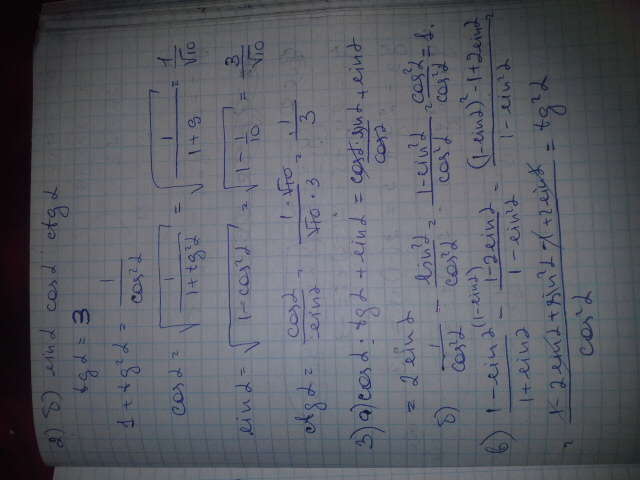 2) б) sin α cos α ctg α
tg α = 3
1 + tg²α = 1/cos²α
cos α = √(1/(1+tg²α)) = √(1/(1+9)) = 1/√10
sin α = √(1-cos²α) = √(1-1/10) = 3/√10
ctg α = cos α/sin α = 1·√10/√10·3 = 1/3
3) а) cos α · tg α + sin α = cos α · sin α/cos α + sin α
= 2 sin α
б) 1/cos²α - sin²α/cos²α = 1-sin²α/cos²α = cos²α/cos²α = 1.
в) 1-sin α^(1-sin α)/1+sin α - 1-2sin α/1-sin²α = (1-sin α)²-1+2sin α/1-sin²α
= 1-2sin α+sin²α-1+2sin α/cos²α = tg²α